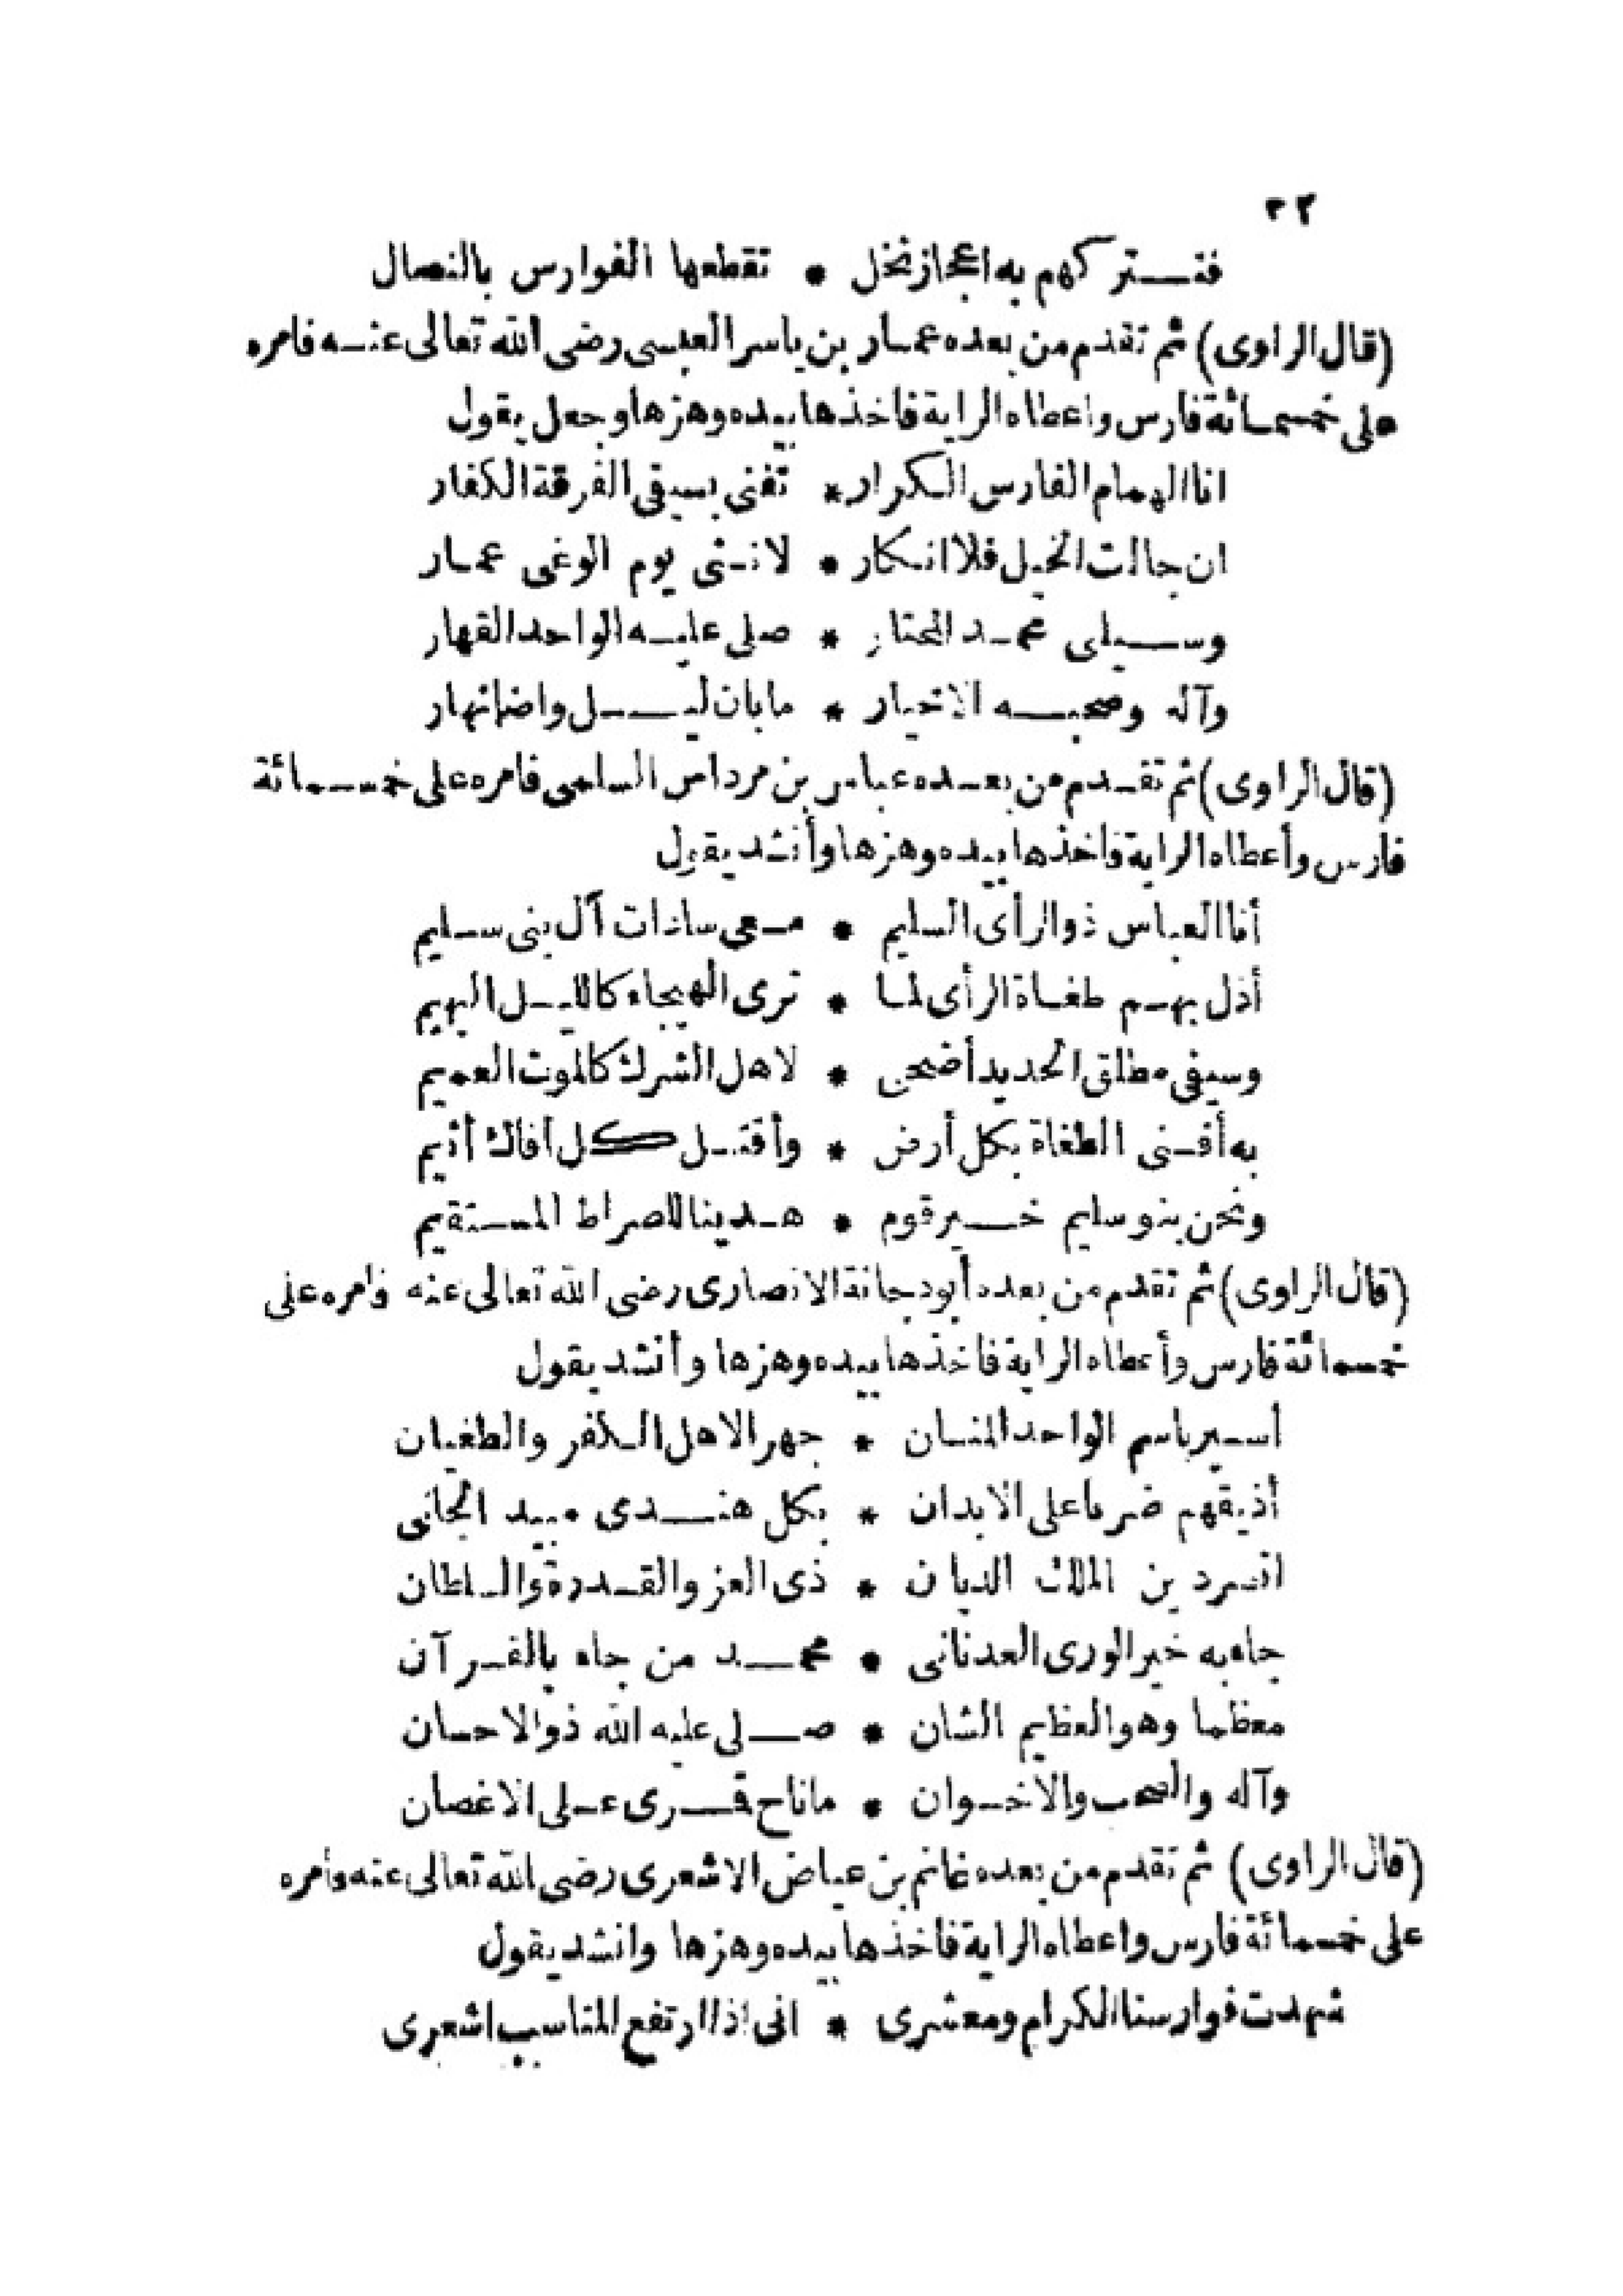 ٢٢
فنتركهم به اعجاز نخل * تقطعها الفوارس بالنصال
(قال الراوى) ثم تقدم من بعده عمار بن ياسر العبسى رضى الله تعالى عنه فامره
على خمسمائة فارس واعطاه الراية فاخذها بيده وهزها وجعل يقول
انا الهمام الفارس الكرار * تفنى بسيفى الفرقة الكفار
ان جالت الخيل فلا انكار * لاننى يوم الوغى عمار
وسيلى محمد المختار * صلى عليه الواحد القهار
وآله وصحبه الاخيار * ما بان ليل واضا نهار
(قال الراوى) ثم تقدم من بعده عباس بن مرداس السلمى فامره على خمسمائة
فارس وأعطاه الراية فاخذها بيده وهزها وأنشد يقول
أنا العباس ذو الرأى السليم * معى سادات آل بنى سليم
أذل بهم طغاة الرأى لما * ترى الهيجاء كالليل البهيم
وسيفى مطلق الحديد أضحى * لاهل الشرك كالموت العميم
به أفنى الطغاة بكل أرض * وأقتل كل أفاك أثيم
ونحن بنو سليم خير قوم * هدينا للصراط المستقيم
(قال الراوى) ثم تقدم من بعده أبو دجانة الانصارى رضى الله تعالى عنه فامره على
خمسمائة فارس وأعطاه الراية فاخذها بيده وهزها وأنشد يقول
أسير باسم الواحد المنان * جهرا لاهل الكفر والطغيان
أذيقهم ضربا على الابدان * بكل هندى مبيد الجانى
انصر دين الملك الديان * ذى العز والقدرة والسلطان
جاء به خير الورى العدنانى * محمد من جاء بالقرآن
معظما وهو العظيم الشان * صلى عليه الله ذو الاحسان
وآله والصحب والاخوان * ما ناح قمرى على الاغصان
(قال الراوى) ثم تقدم من بعده غانم بن عياض الاشعرى رضى الله تعالى عنه وأمره
على خمسمائة فارس واعطاه الراية فاخذها بيده وهزها وانشد يقول
شهدت فوارسنا الكرام ومعشرى * انى اذا ارتفع المناسب اشعرى